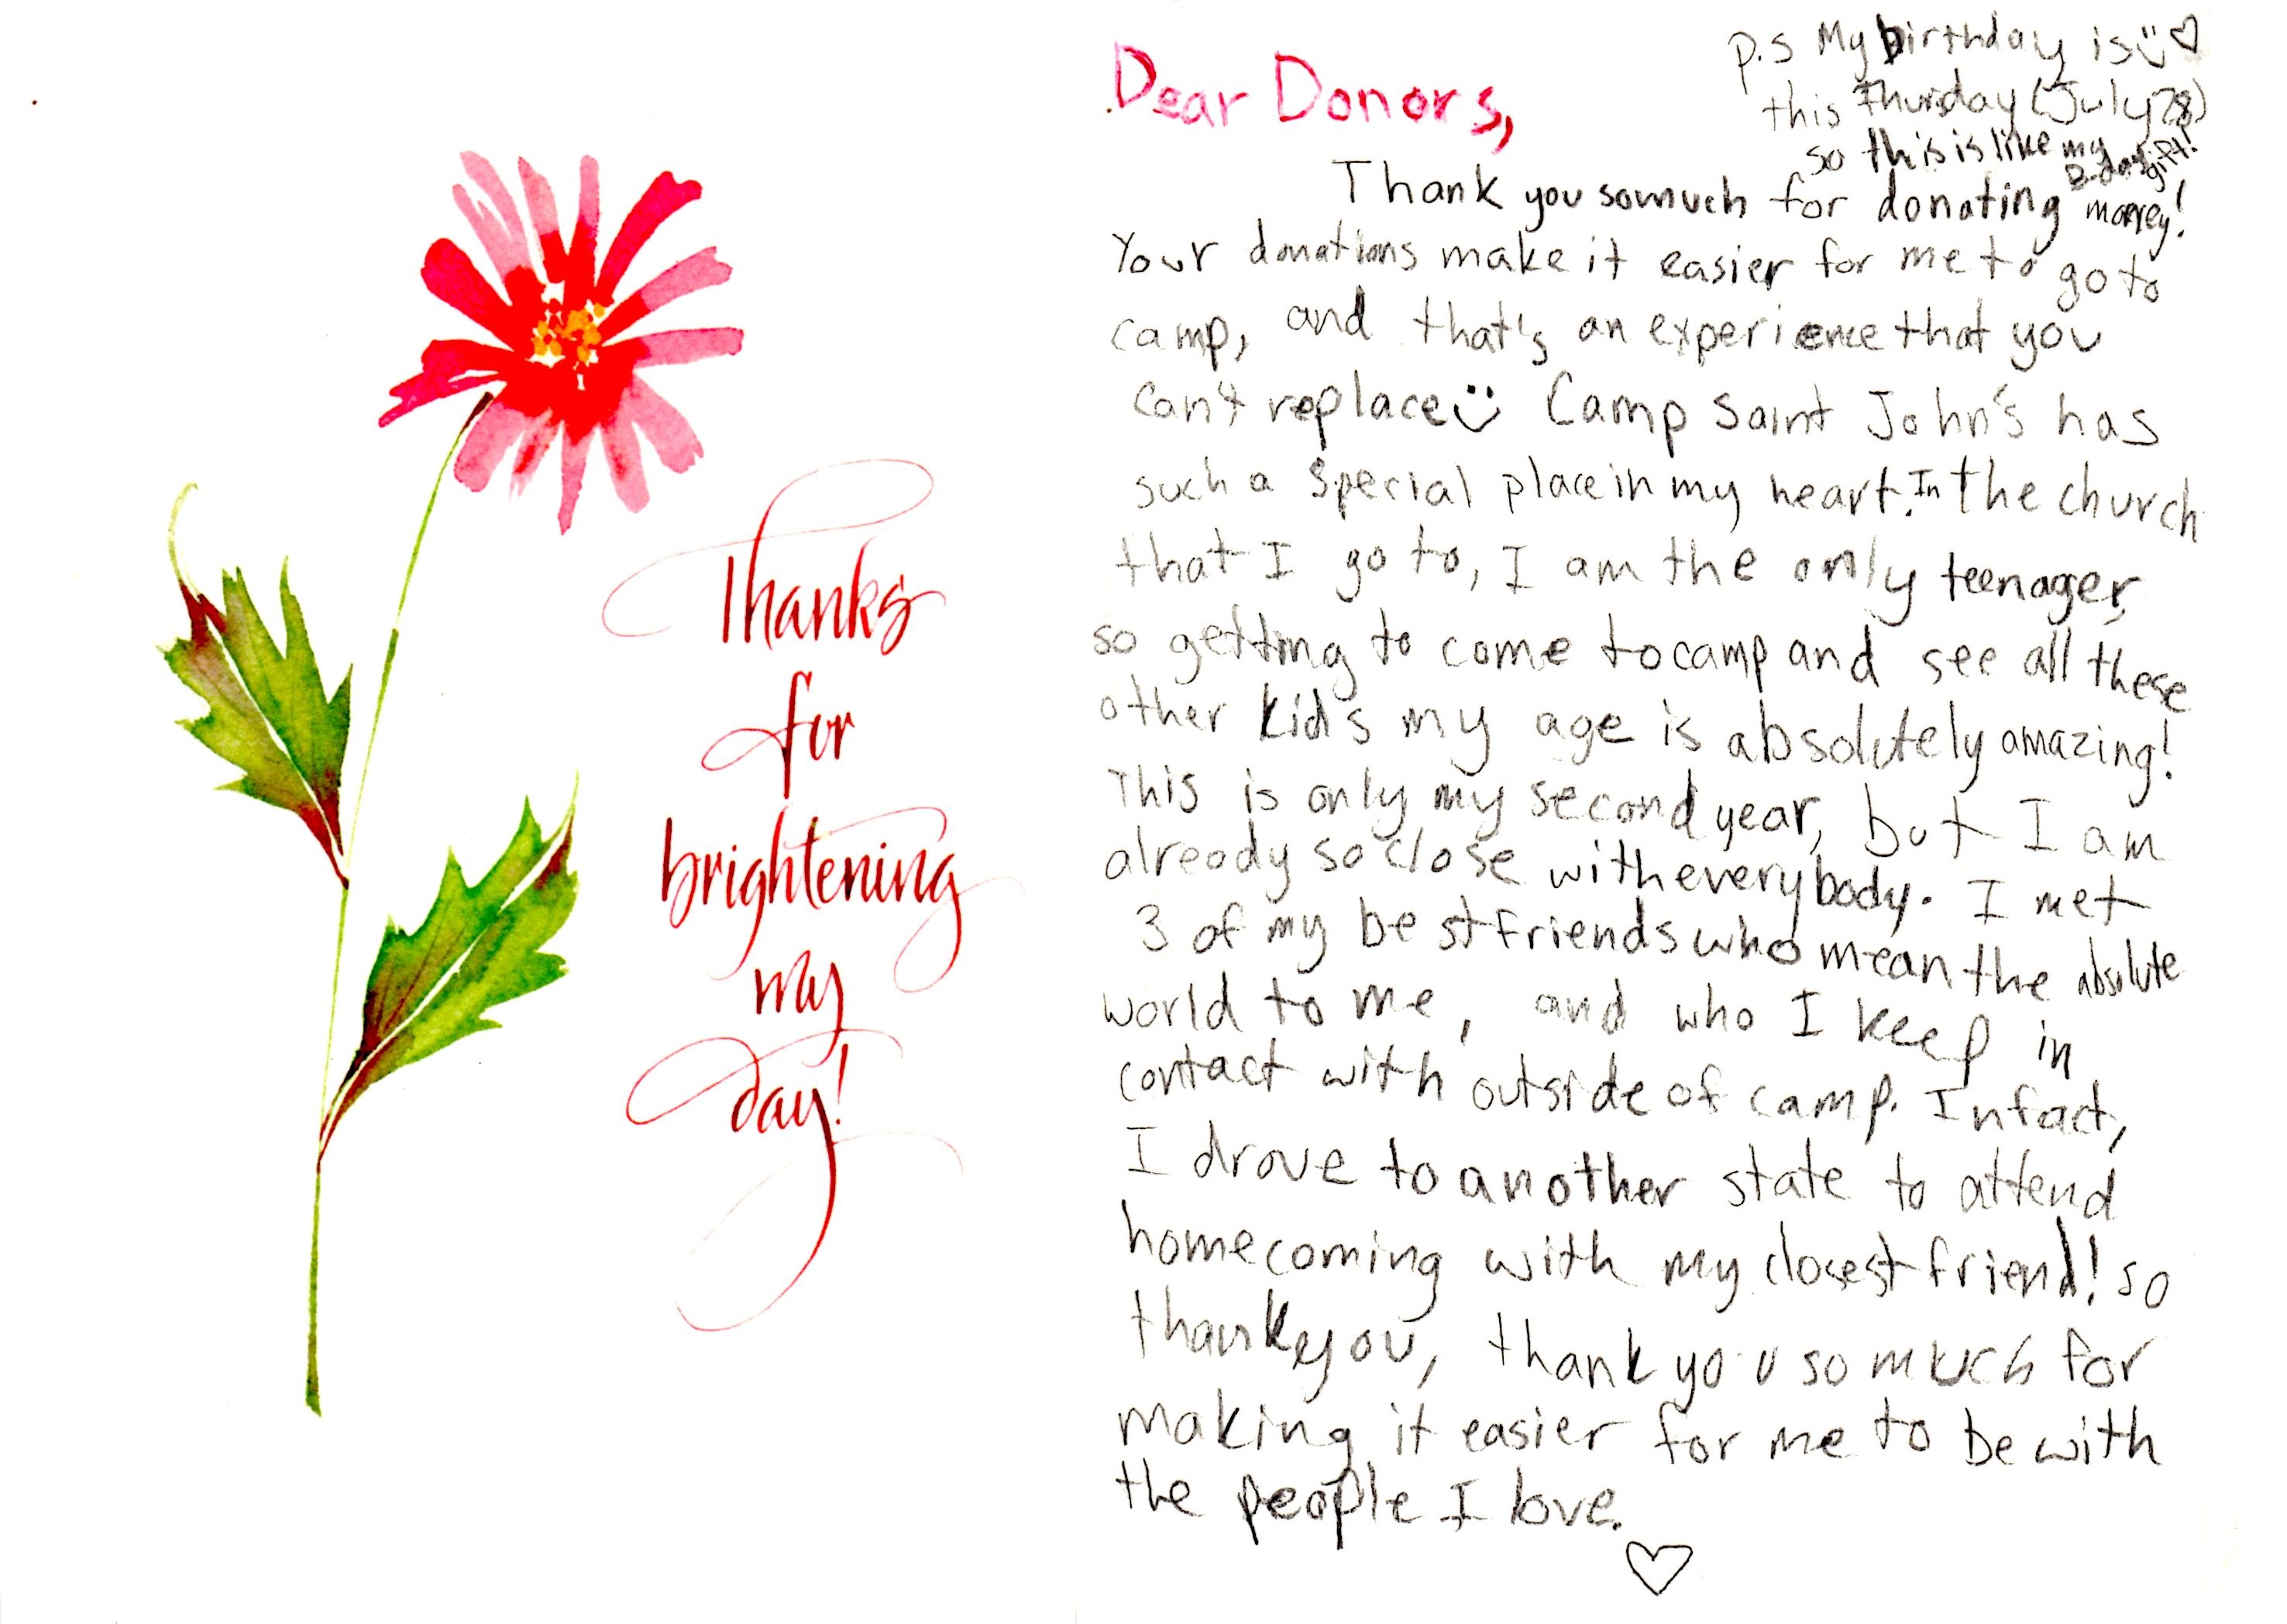 Thanks
for
brightening
my
day!
p.s My birthday is
this Thursday (July 28)
so this is like my
B-day gift!
Dear Donors,
Thank you so much for donating money!
Your donations make it easier for me to go to
camp, and that's an experience that you
can't replace Camp Saint John's has
such a special place in my heart. In the church
that I go to, I am the only teenager,
so getting to come to camp and see all these
other kids my age is absolutely amazing!
This is only my second year, but I am
already so close with everybody. I met
3 of my best friends who mean the absolute
world to me, and who I keep in
contact with outside of camp. In fact,
I drove to another state to attend
homecoming with my closest friend! so
thank you, thank you so much for
making it easier for me to be with
the people I love.